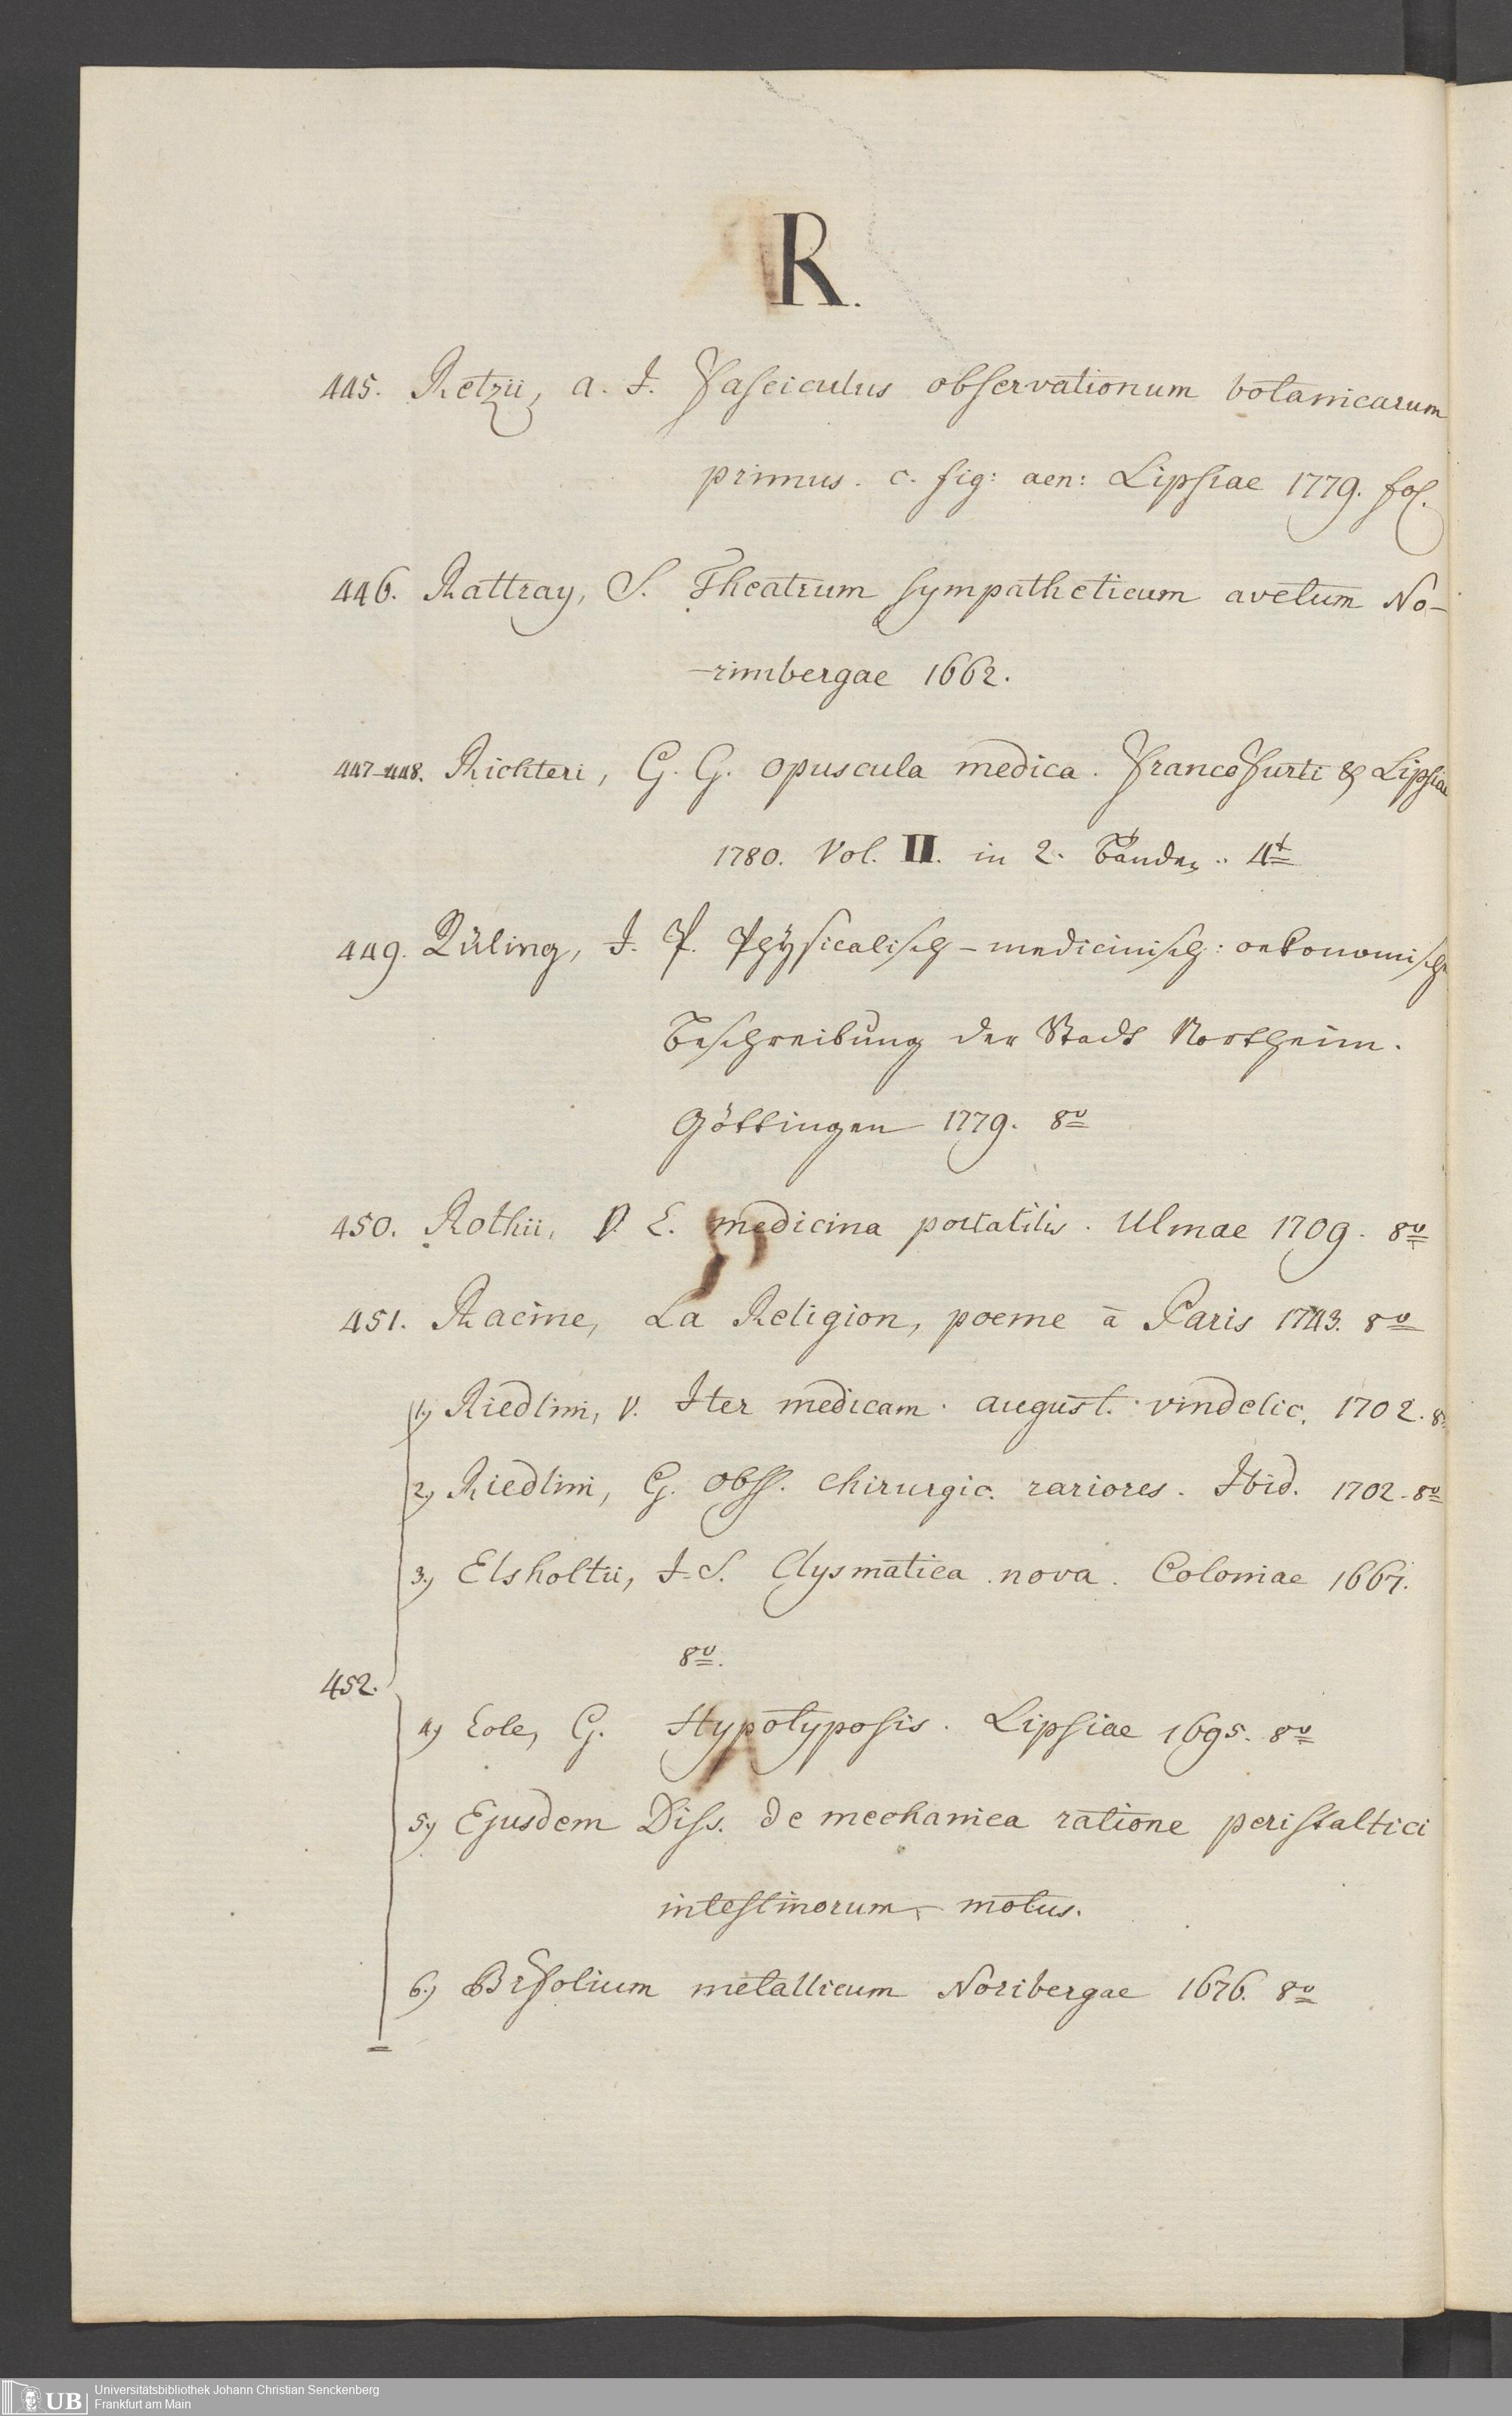 R.
445. Retzii, a. J. Fasciculus observationum botanicarum
primus. c. fig: aen: Lipsiae 1779. fol.
446. Rattray, S. Theatrum sympatheticum avctum No-
-rimbergae 1662.
447-448. Richteri, G. G. opuscula medica. Francofurti & Lipsiae
1780. Vol. II. in 2. Bänden. 4t
449. Rüling, J. P. Physicalisch-medicinisch: oekonomische
Beschreibung der Stadt Northeim.
Göttingen 1779. 8v
450. Rothii, V. E. medicina portatilis. Ulmae 1709. 8v
451. Racine, La Religion, poeme à Paris 1743. 8v
1.) Riedlini, V. Iter medicam. august. vindelic. 1702. 8v
2.) Riedlini, G. obss. chirurgic. rariores. Ibid. 1702. 8v
3.) Elsholtii, J. S. Clysmatica nova. Coloniae 1667.
8v.
452.
4) Cole, G. Hypotyposis. Lipsiae 1695. 8v
5) Ejusdem Diss. de mechanica ratione peristaltici
intestinorum motus.
6.) Bifolium metallicum Noribergae 1676. 8v
UB
Universitätsbibliothek Johann Christian Senckenberg
Frankfurt am Main